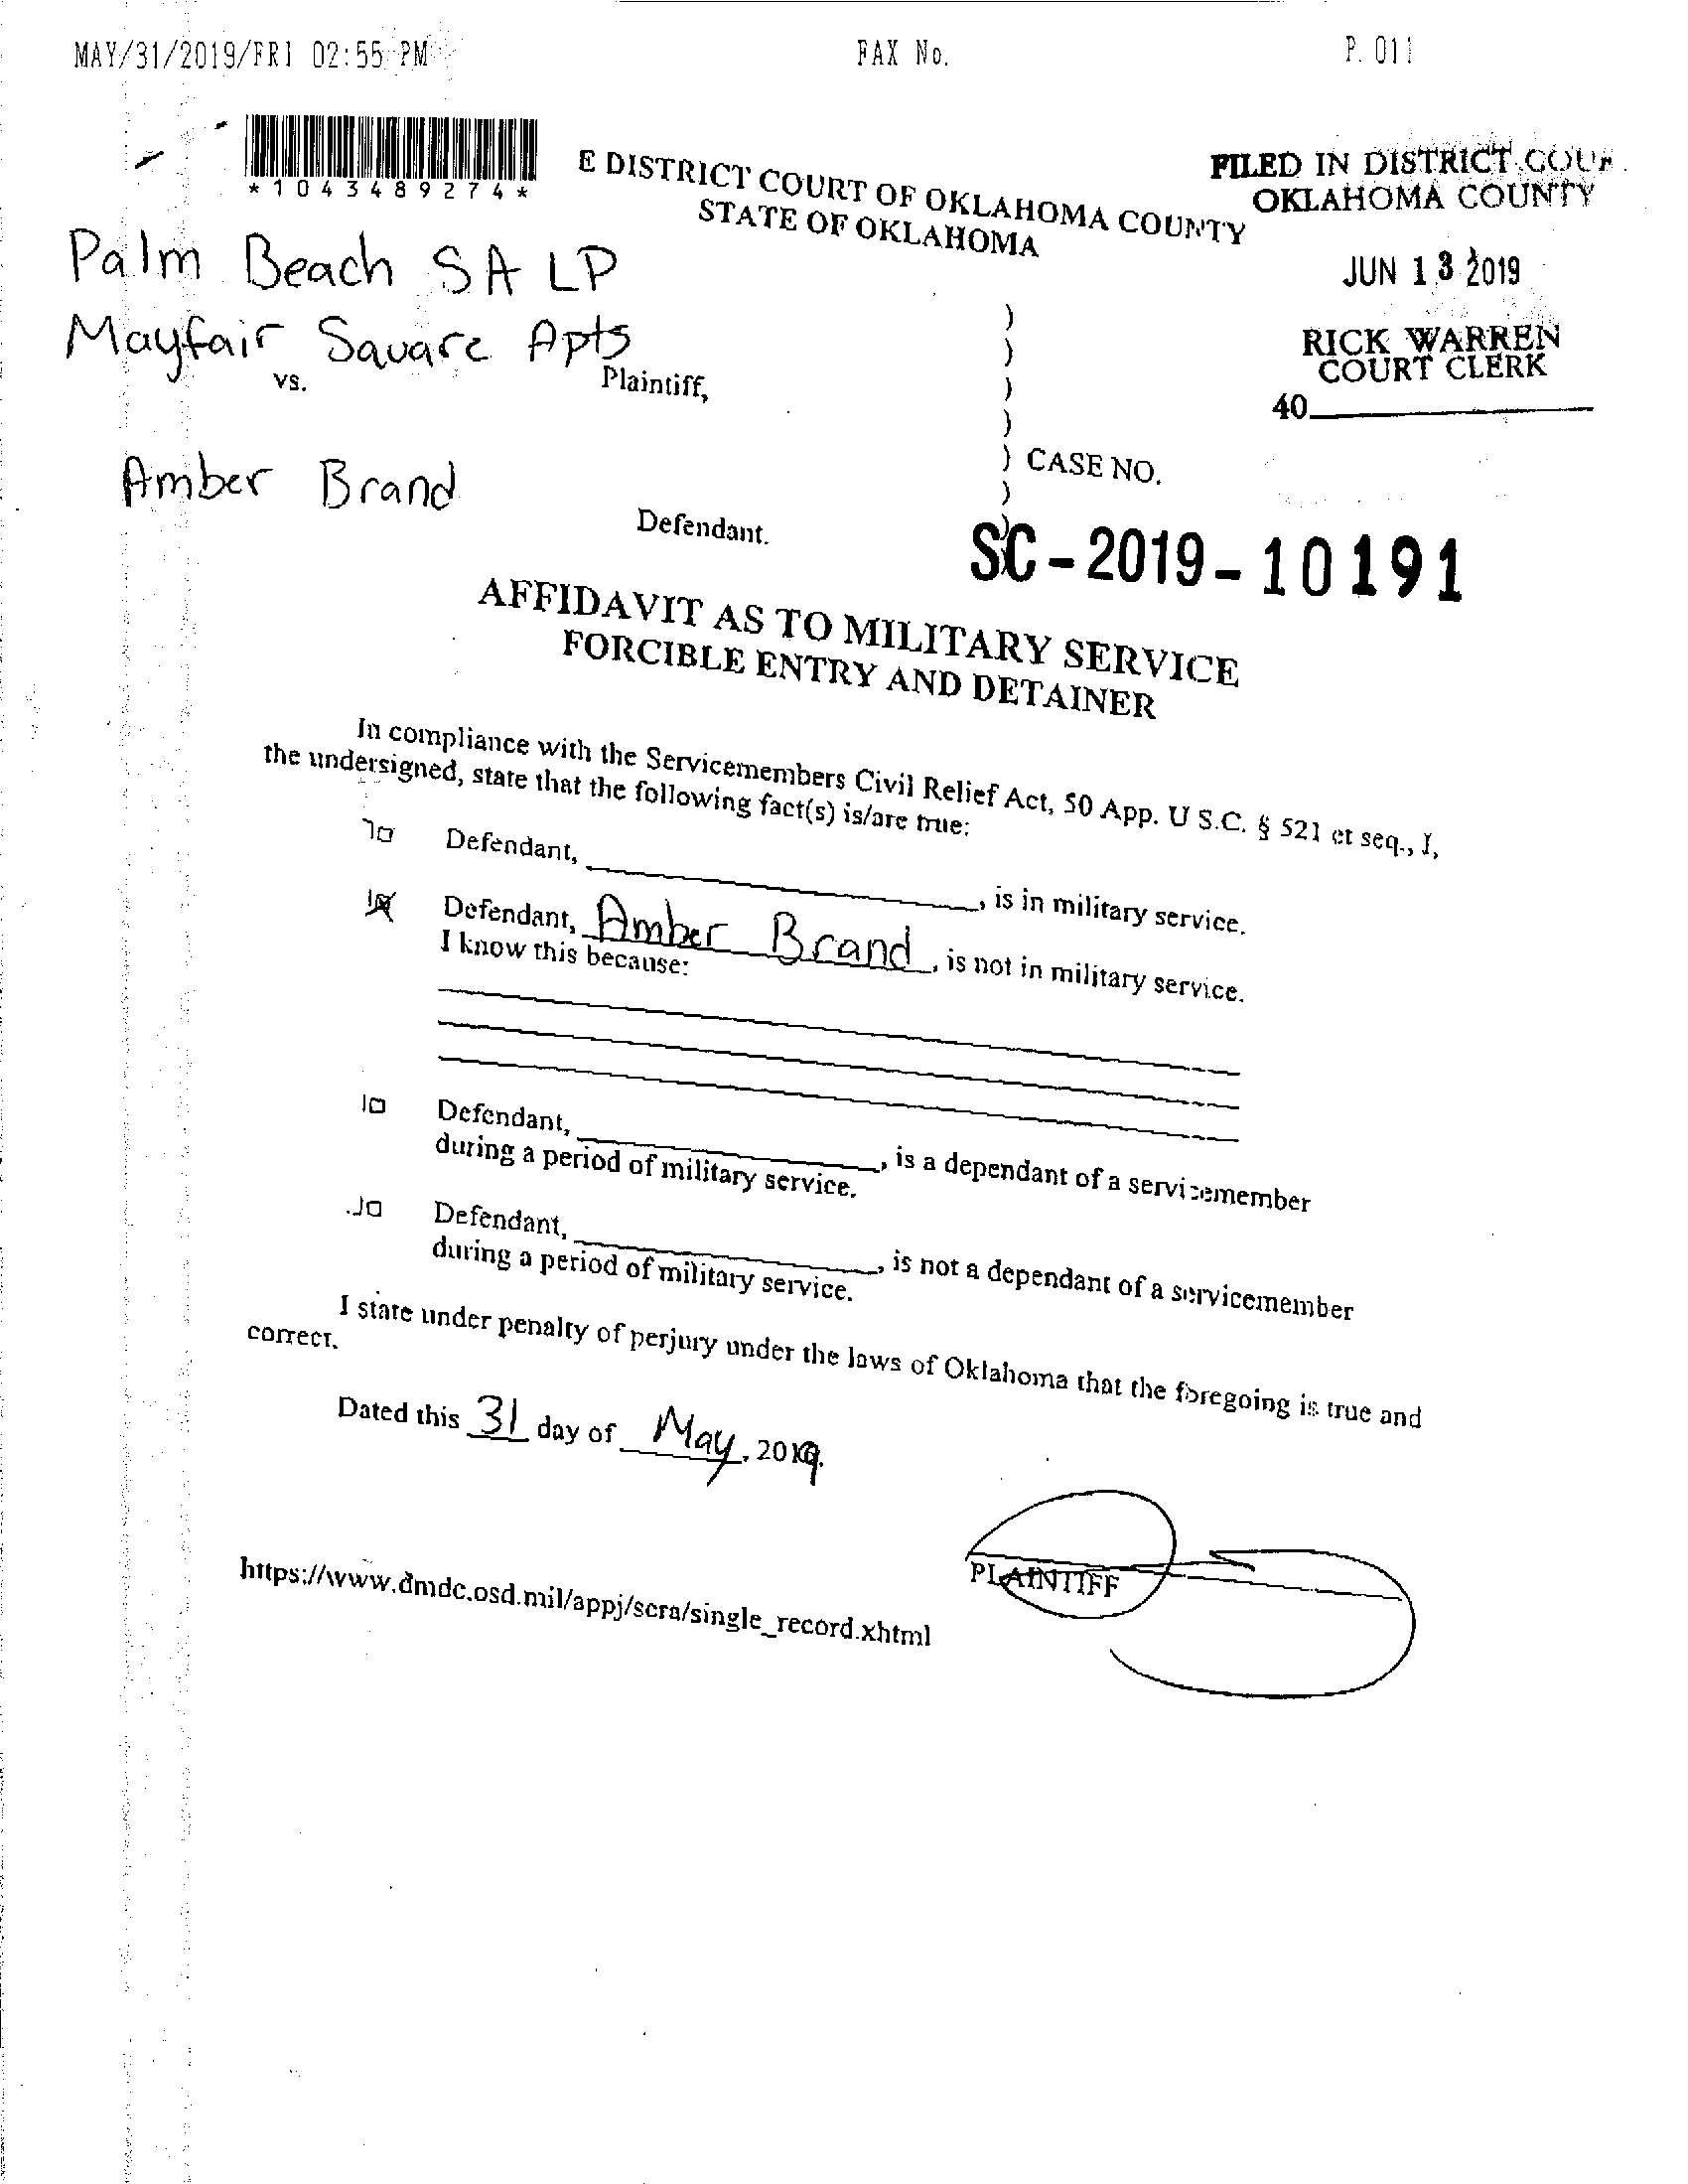 MAY/31/2019/FRI 02:55 PM FAX No. P. 011
*1043489274*
E DISTRICT COURT OF OKLAHOMA COUNTY
STATE OF OKLAHOMA
FILED IN DISTRICT COUR
OKLAHOMA COUNTY
JUN 13 2019
RICK WARREN
COURT CLERK
40
Palm Beach SA LP
Mayfair Square Apts
vs. Plaintiff,
Amber Brand
Defendant.
) CASE NO.
SC-2019-10191
AFFIDAVIT AS TO MILITARY SERVICE
FORCIBLE ENTRY AND DETAINER
In compliance with the Servicemembers Civil Relief Act, 50 App. U S.C. § 521 et seq., I,
the undersigned, state that the following fact(s) is/are true:
Defendant, , is in military service.
Defendant, Amber Brand, is not in military service.
I know this because:
Defendant, , is a dependant of a servicemember
during a period of military service.
Defendant, , is not a dependant of a servicemember
during a period of military service.
I state under penalty of perjury under the laws of Oklahoma that the foregoing is true and
correct.
Dated this 31 day of May, 2019.
PLAINTIFF
https://www.dmdc.osd.mil/appj/scra/single_record.xhtml